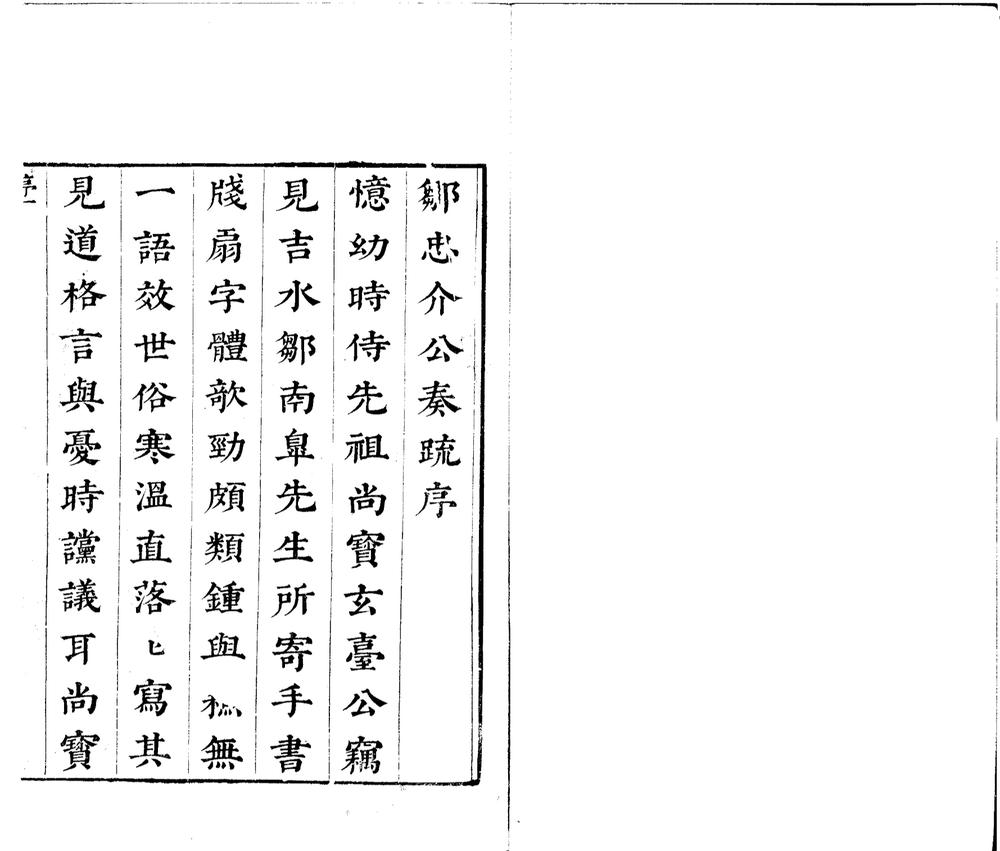 鄒忠介公奏疏序
憶幼時侍先祖尚寶玄臺公竊
見吉水鄒南臯先生所寄手書
牋扇字體欹勁頗類鍾與無
一語效世俗寒溫直落匕寫其
見道格言與憂時讜議耳尚寶
序一